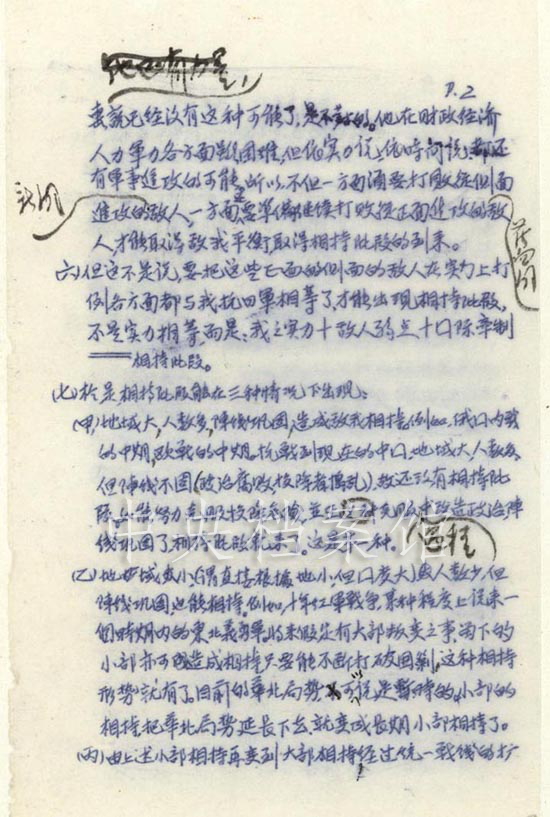 P.2
来说已经没有这种可能了,是不对的。他在财政经济
人力军力各方面虽困难,但依实力说,依时间说,都还
有军事进攻的可能,所以不但一方面须要打败从侧面
进攻的敌人,一方面要准备继续打败从正面进攻的敌
人,才能取得敌我平衡取得相持阶段的到来。
六)但这不是说,要把这些正面的侧面的敌人在实力上打
倒各方面都与我抗日军相等了,才能出现相持阶段,
不是实力相等,而是:我之实力十敌人弱点十口际牵制
相持阶段。
(七)于是,相持阶段能在三种情况下出现:
(甲)地域大,人数多,阵线巩固,造成敌我相持,例如,俄口内战
的中期,欧战的中期,抗战到现在的中口,地域大,人数多
但阵线不固(政治腐败,投降者捣乱),故还没有相持阶
段,
线巩固了,相持阶段就来。这是第一种。
过程
(乙)地域小,(谓直接根据地小,但口度大)人数少,但
阵线巩固也能相持。例如,十年红军战争,某种程度上说来一
个时期内的东北义勇军,将来假定有大部叛变之事而下的
小部亦可造成相持,只要能不断打破围剿,这种相持
形势就有了。目前的华北局势可说是暂时的,小部的
相持,把华北局势延长下去,就变成长期小部相持了。
(丙)由上述小部相持再变到大部相持,经过统一战线的扩
中央档案馆